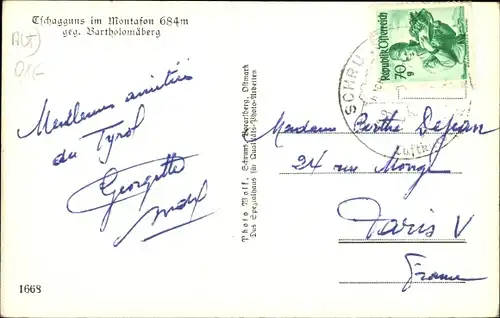 Tschagguns im Montafon 684m
geg. Bartholomäberg
Meilleures amitiés
du Tyrol
Georgette
Photo Wolf, Schruns, Vorarlberg, Ostmark
Das Spezialhaus für Qualitäts-Photo-Arbeiten
Republik Österreich
70 g
SCHRU
Luftk
Madame Berthe Dejean
24 rue Monge
Paris V
France
1668